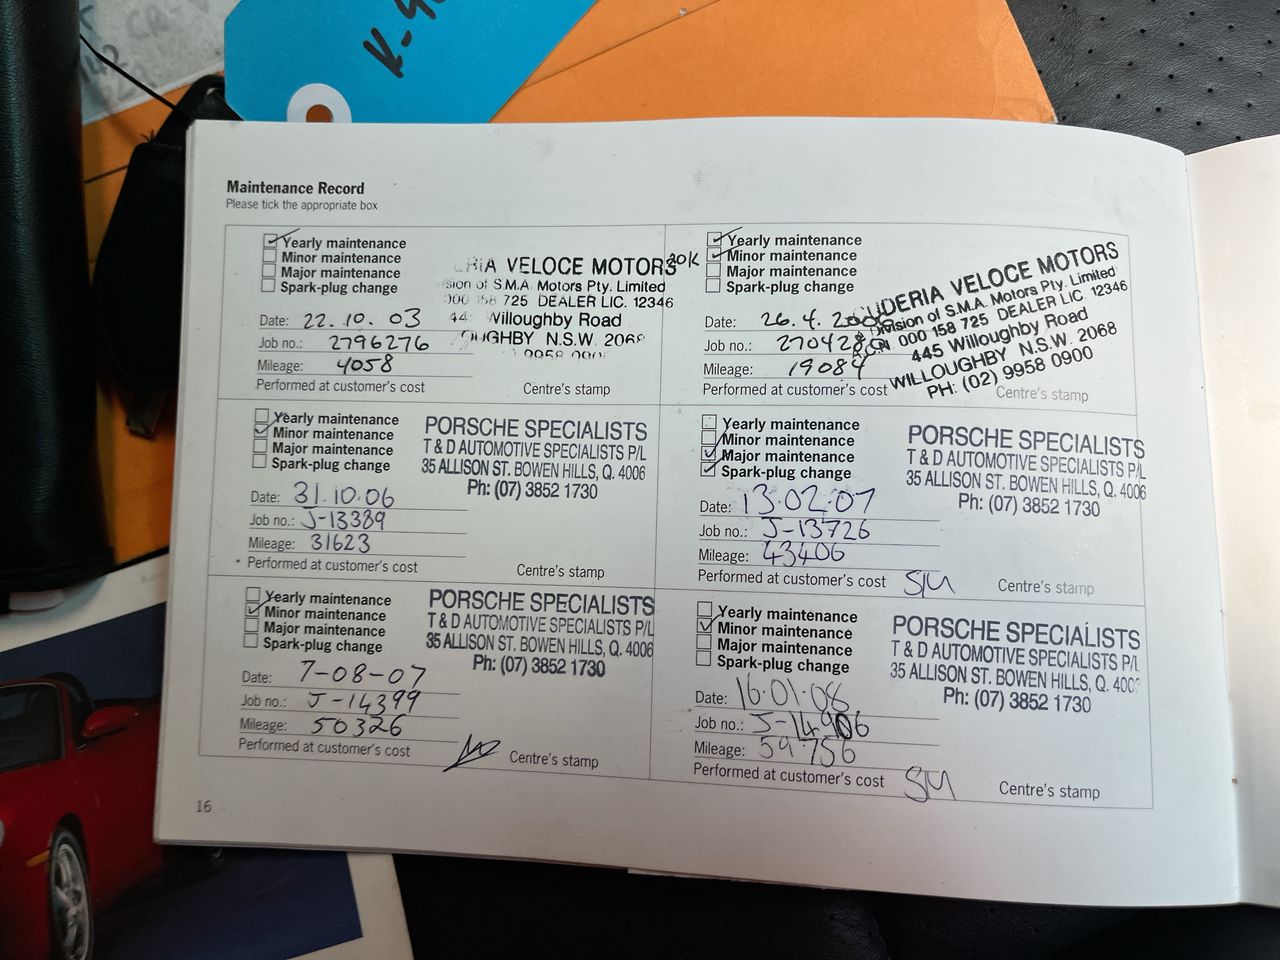 K-9
CR-V
Maintenance Record
Please tick the appropriate box
Yearly maintenance
Minor maintenance
Major maintenance
Spark-plug change
Date: 22.10.03
Job no.: 2796276
Mileage: 4058
Performed at customer's cost
ERIA VELOCE MOTORS
sion of S.M.A. Motors Pty. Limited
000 158 725 DEALER LIC. 12346
44 Willoughby Road
OUGHBY N.S.W. 2068
9958 090
Centre's stamp
30K
Yearly maintenance
Minor maintenance
Major maintenance
Spark-plug change
Date: 26.4.2006
Job no.: 2704280
Mileage: 19084
Performed at customer's cost
UDERIA VELOCE MOTORS
Division of S.M.A. Motors Pty. Limited
A.C.N 000 158 725 DEALER LIC. 12346
445 Willoughby Road
WILLOUGHBY N.S.W. 2068
PH: (02) 9958 0900
Centre's stamp
Yearly maintenance
Minor maintenance
Major maintenance
Spark-plug change
Date: 31.10.06
Job no.: J-13389
Mileage: 31623
Performed at customer's cost
PORSCHE SPECIALISTS
T & D AUTOMOTIVE SPECIALISTS P/L
35 ALLISON ST. BOWEN HILLS, Q. 4006
Ph: (07) 3852 1730
Centre's stamp
Yearly maintenance
Minor maintenance
Major maintenance
Spark-plug change
Date: 13.02.07
Job no.: J-13726
Mileage: 43406
Performed at customer's cost
PORSCHE SPECIALISTS
T & D AUTOMOTIVE SPECIALISTS P/L
35 ALLISON ST. BOWEN HILLS, Q. 4006
Ph: (07) 3852 1730
Centre's stamp
Yearly maintenance
Minor maintenance
Major maintenance
Spark-plug change
Date: 7-08-07
Job no.: J-14399
Mileage: 50326
Performed at customer's cost
PORSCHE SPECIALISTS
T & D AUTOMOTIVE SPECIALISTS P/L
35 ALLISON ST. BOWEN HILLS, Q. 4006
Ph: (07) 3852 1730
Centre's stamp
Yearly maintenance
Minor maintenance
Major maintenance
Spark-plug change
Date: 16.01.08
Job no.: J-14906
Mileage: 59756
Performed at customer's cost
PORSCHE SPECIALISTS
T & D AUTOMOTIVE SPECIALISTS P/L
35 ALLISON ST. BOWEN HILLS, Q. 400
Ph: (07) 3852 1730
Centre's stamp
16